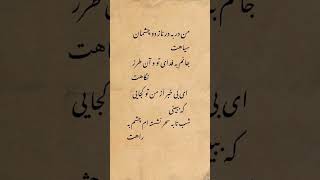 من در به در ناز دو چشمان
سیاهت
جانم به فدای تو و آن طرز
نگاهت
ای بی خبر از من تو کجایی
که ببینی
شب تا به سحر نشسته ام چشم به
راهت